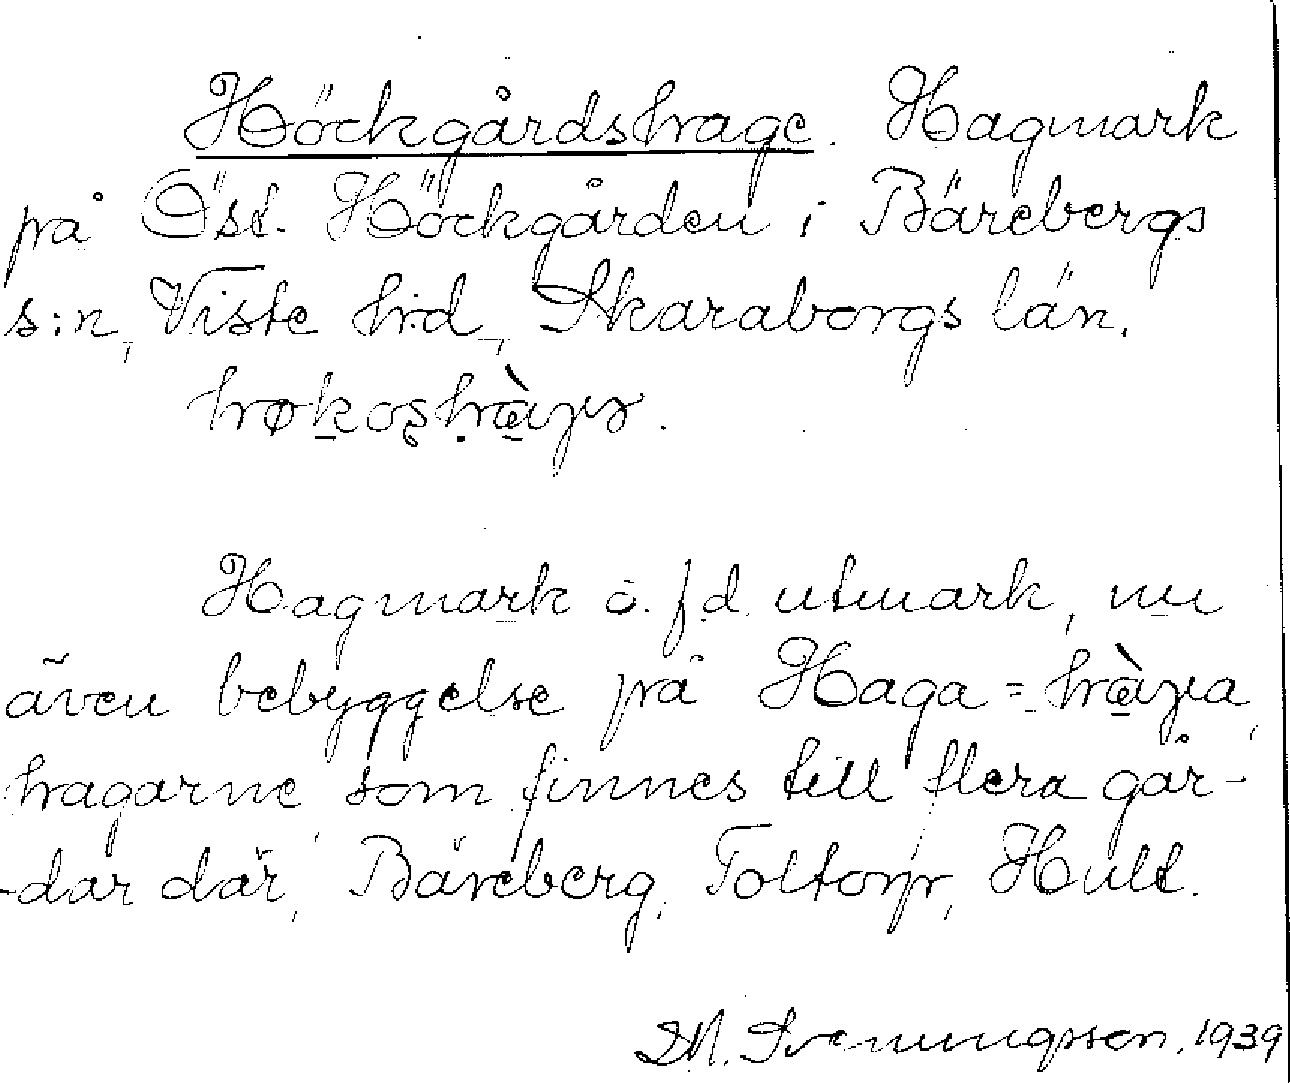 Höckgårdshage. Hagmark
på Öst. Höckgården i Bärebergs
s:n, Viste hrd, Skaraborgs län.
Hagmark o. f.d. utmark, nu
även bebyggelse på Haga =
hagarne som finnes till flera går-
-dar där, Bäreberg, Toltorp, Hult.
M. Svenungsson. 1939